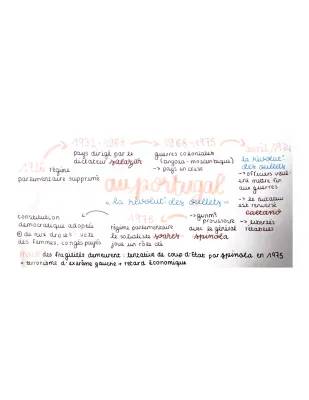 1926 régime
parlementaire supprimé
1932-1968
pays dirigé par le
dictateur salazar
1968-1975
guerres coloniales
(angola - mozambique)
→ pays en crise
avril 1974
la révolut°
des œillets
→ officiers veul-
ent mettre fin
aux guerres
→ le dictateur
est renversé
caetano
→ libertés
rétablies
au portugal
" la révolut° des œillets "
→ gvnmt
provisoire
avec le général
spinola
1976
régime parlementaire
le socialiste soares
joue un rôle clé
constitution
démocratique adoptée
droit vote
des femmes, congés payés
mais des fragilités demeurent : tentative de coup d'Etat par spinola en 1975
+ terrorisme d'extrême gauche + retard économique